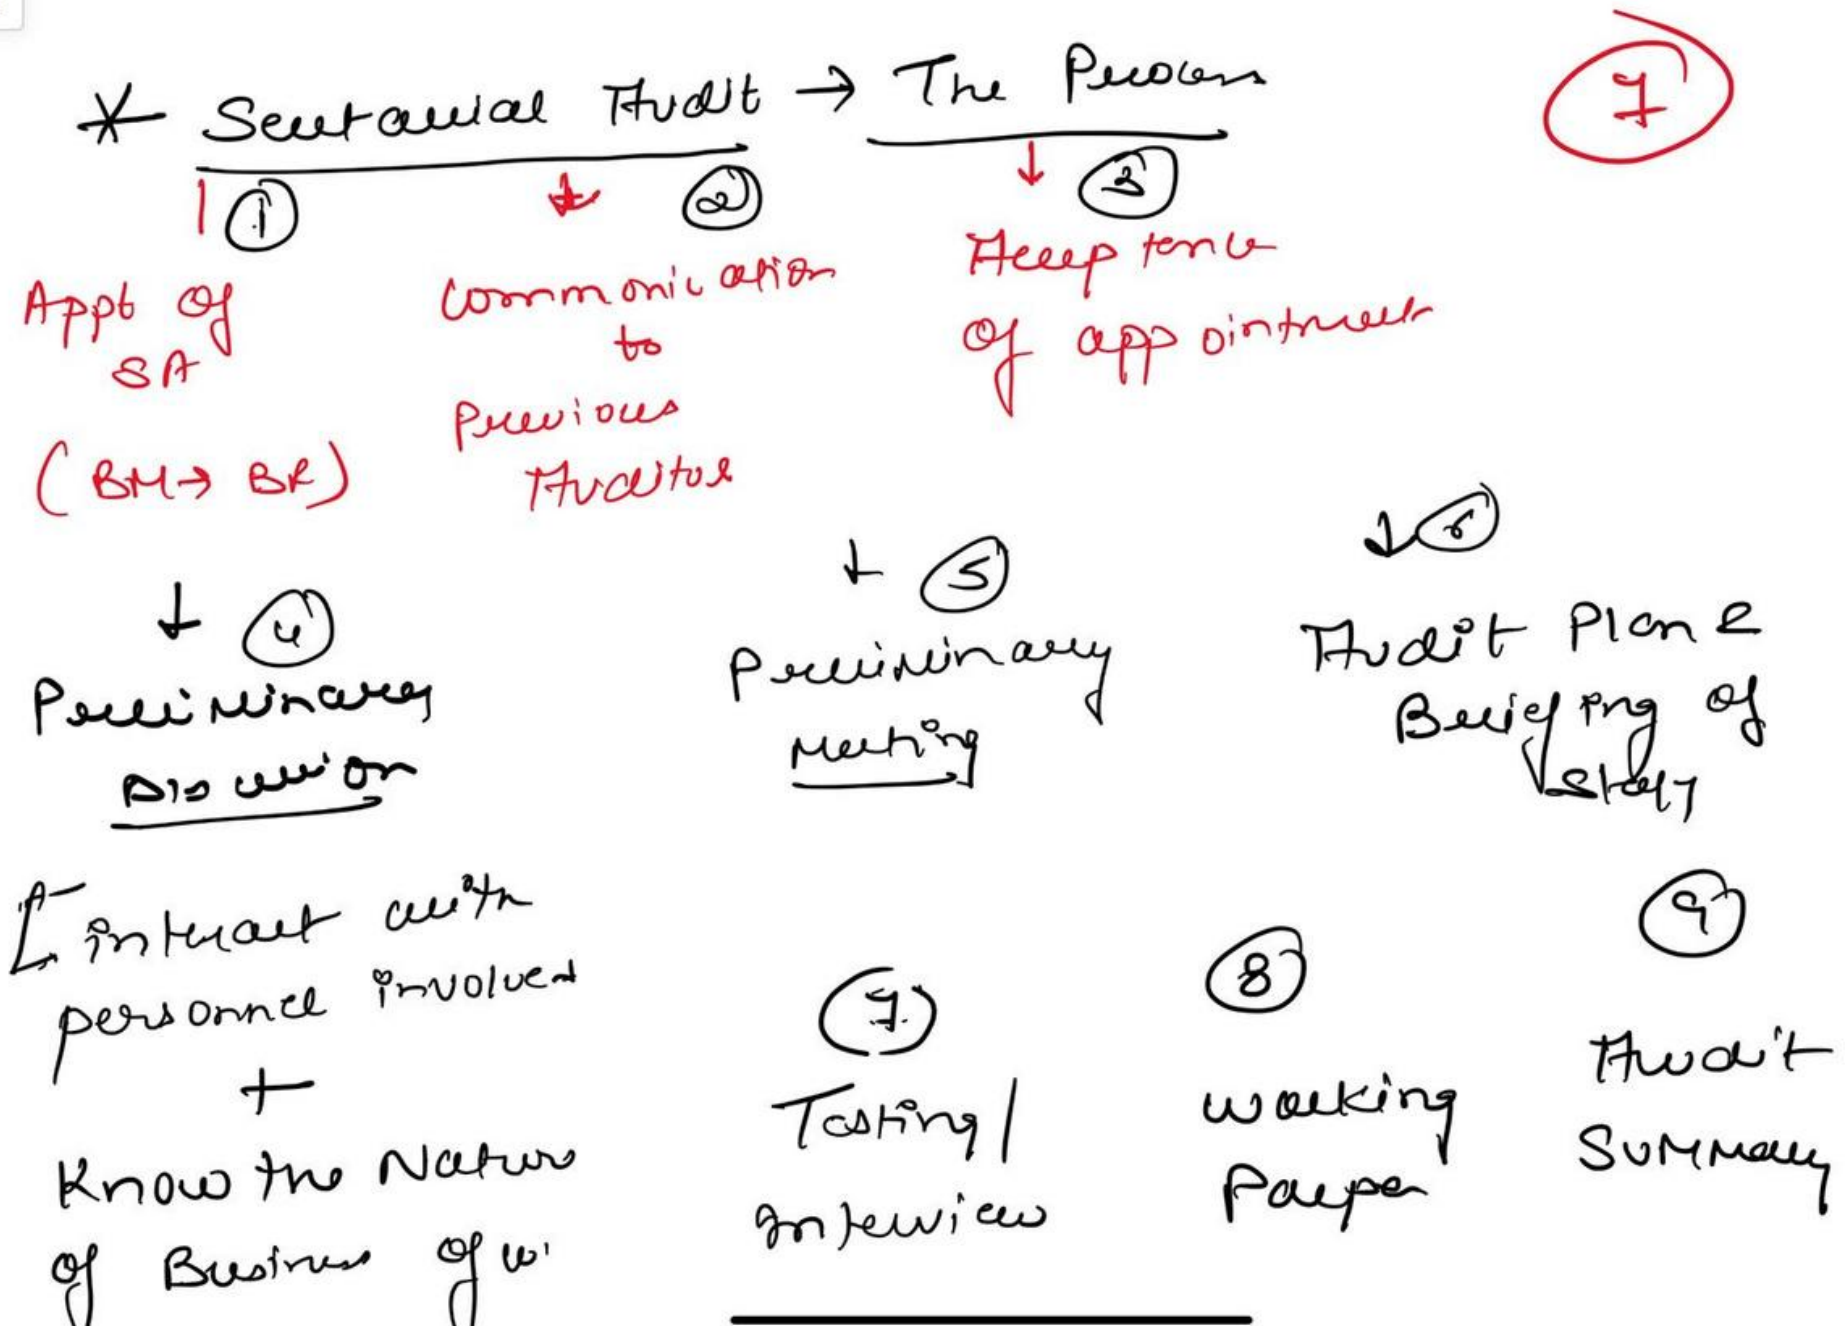 * Secretarial Audit → The Process
7
①
②
③
Appt of
SA
(BM → BR)
Communication
to
Previous
Auditor
Acceptence
of appointment
④
Preliminary
Discussion
interact with
personnel involved
+
Know the Nature
of Business of
⑤
Preliminary
Meeting
⑥
Audit Plan &
Briefing of
Staff
⑦
Testing/
Interview
⑧
Working
Paper
⑨
Audit
Summary